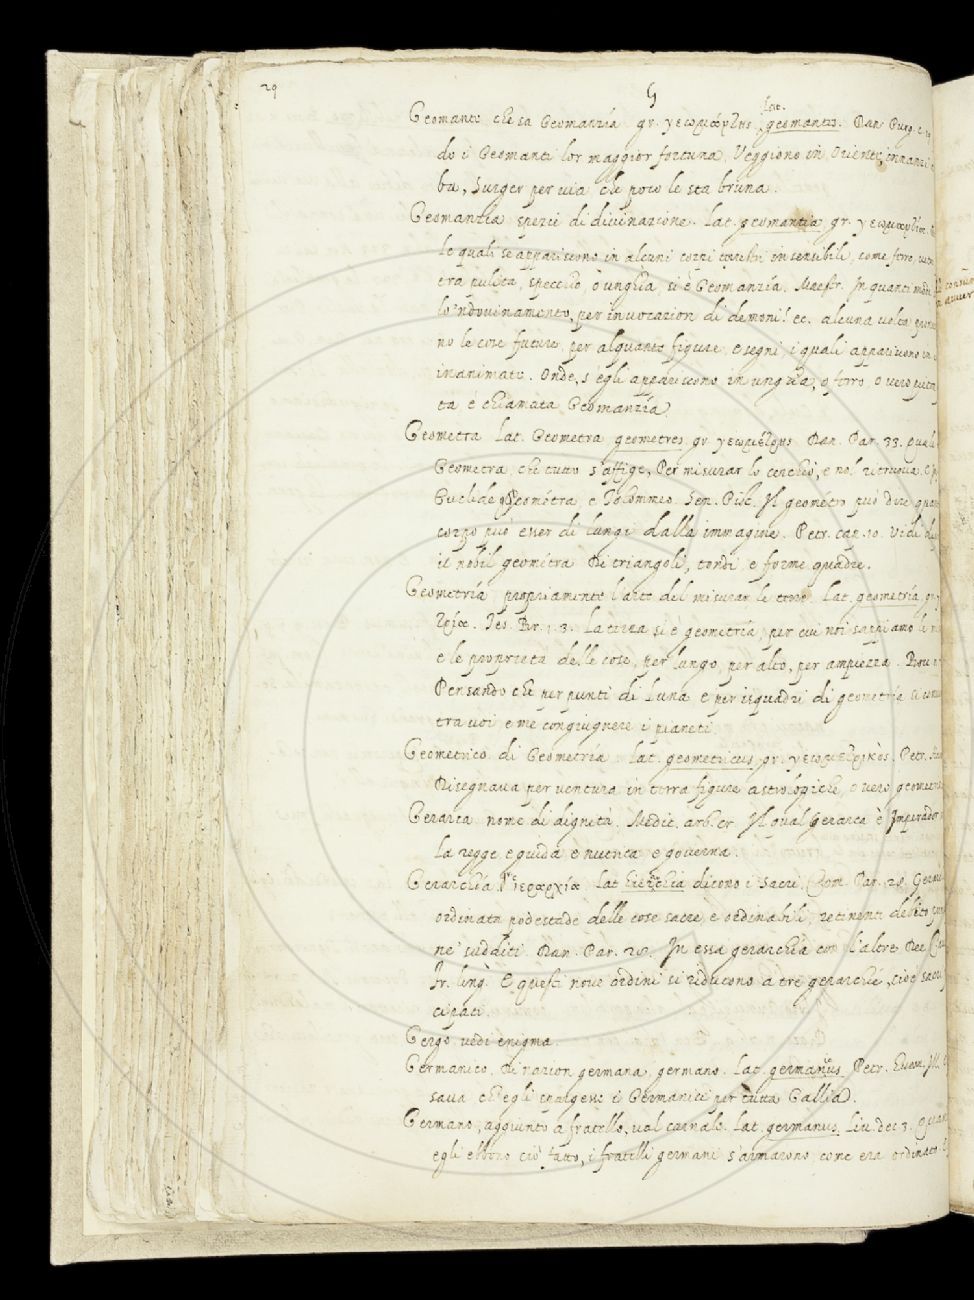 29
G
Lat.
Geomante che sa Geomanzía gr. γεωμάντης, geomantis. Dan. Purg. c. 19
do i Geomanti lor maggior fortuna, Veggiono in Oriente, innanzi
ba, Surger per via che poco le sta bruna.
Geomanzía spezie di divinazione. Lat. geomantia gr. γεωμαντεία.
le quali se appariscono in alcuni corpi insensibili, come ferro,
tra pulita, specchio, o unghia si è Geomanzía. Maestr. In quanti modi
lo 'ndovinamento, per invocazion di demoni! ec. alcuna volta
no le cose future per alquante figure, e segni, i quali appariscono in
inanimate. Onde, s'egli appariscono in unghia, o ferro, o vero pietra
ta è chiamata Geomanzía.
Geometra Lat. Geometra geometres gr. γεωμέτρης Dan. Par. 33. Qual è
Geometra che tutto s'affige, Per misurar lo cerchio, e nol ritruova.
Euclide geométra e Tolommeo. Sen. Pist. Il geométra può dire
corpo può esser di lungi dalla immagine. Petr. cap. 10. Vidi
il nobil geométra Di triangoli, tondi, e forme quadre.
Geometría, propriamente l'arte del misurar le terre. Lat. geometría,
τρία. Tes. Br. 1. 3. La terza si è geometría, per cui noi sappiamo le
e le propietà delle cose, per lungo, per alto, per ampiezza.
Pensando che per punti di Luna e per isquadri di geometría si
tra voi e me congiugnere i pianeti.
Geometrico di Geometría. Lat. geometricus gr. γεωμετρικὸς. Petr.
Disegnava per ventura in terra figure astrologiche, o vero
Gerarca nome di dignità. Medit. arb. cr. Il qual Gerarca è Imperador
la regge e guida e nutrica e governa.
Gerarchía ἱεραρχία Lat. hierarchia dicono i Sacri. Com. Par. 28.
ordinata podestade delle cose sacre, e ordinabili, retinenti debito
ne' sudditi. Dan. Par. 28. In essa gerarchia con l'altre Dee
Fr. Iung. E questi nove ordini si riducono a tre gerarchie, cioè
cipati.
Gergo vedi enigma.
Germanico. Di nazion germana, germano. Lat. germanus Petr.
sava ch'egli i Germanici per tutta Gallia.
Germano, aggiunto a fratello, val carnale. Lat. germanus. Liv. dec. 3.
egli ebbono ciò fatto, i fratelli germani s'armarono, come era ordinato